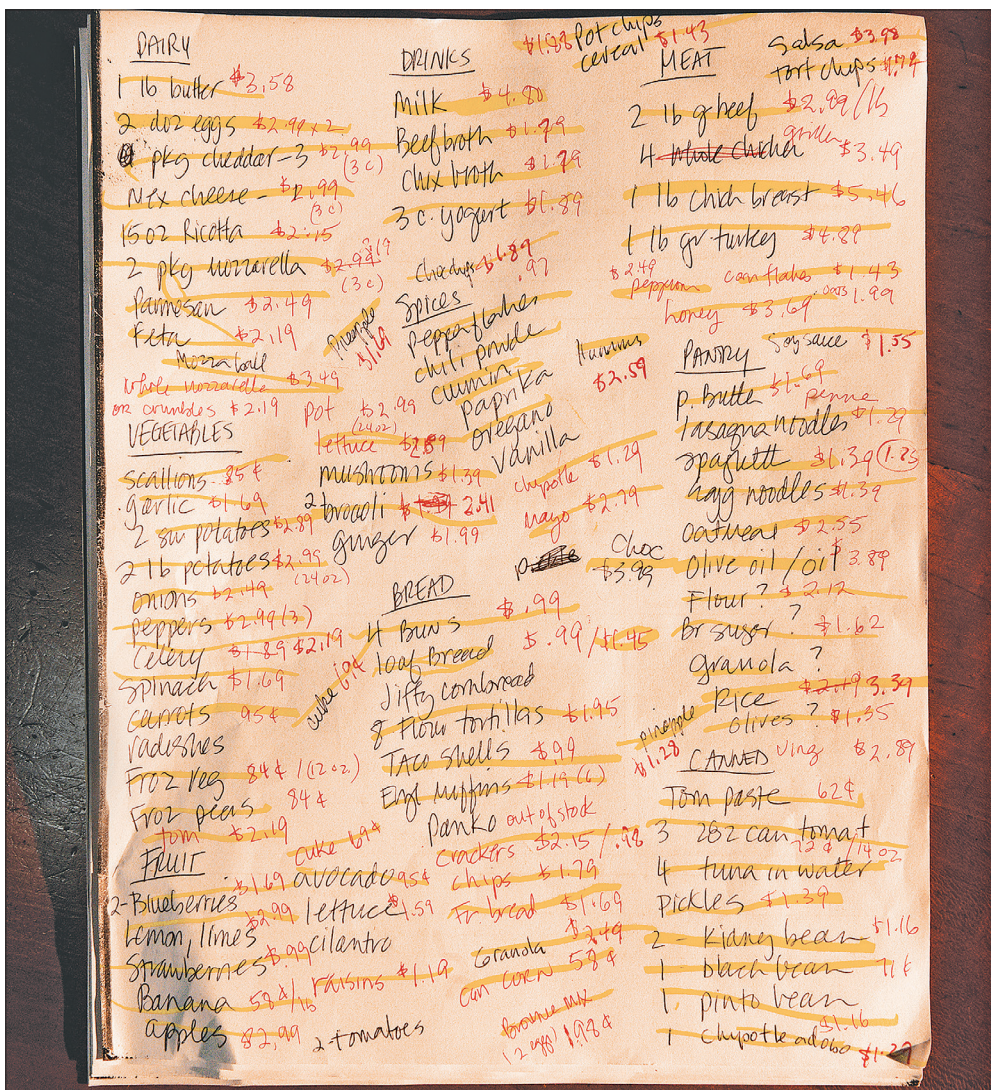 DAIRY
1 lb butter $3.58
2 doz eggs $2.99 x 2
pkg cheddar - 3 $2.99
(3c)
Mex cheese - $2.99
(3c)
15 oz Ricotta $2.15
2 pkg Mozzarella $2.99 2.19
(3c)
Parmesan $2.49
Feta $2.19
Mozza ball
whole mozzarella $3.49
or crumbles $2.19
VEGETABLES
scallions 85¢
garlic $1.69
2 sw potatoes $2.89
2 lb potatoes $2.99
(24oz)
onions $2.49
peppers $2.99 (3)
Celery $1.89 $2.19
Spinach $1.69
carrots 95¢
radishes
Froz veg 84¢ / (12 oz.)
Froz peas 84¢
tom $2.19
FRUIT
2 - Blueberries $1.69
Lemon, limes $2.99
Strawberries $.99
Banana 58¢/lb
apples $2.99
DRINKS
Milk $4.80
Beef broth $1.79
chix broth $1.79
3 c. yogurt $1.89
choc chips $1.89
.97
Spices
pepper flakes
chili
cumin
paprika
oregano
vanilla
Pineapple
$1.69
pot $2.99
(24oz)
lettuce $2.89
mushrooms $1.39
2 brocoli 2.41
ginger $1.99
hummus
$2.59
chipotle $1.29
mayo $2.79
Choc
$3.99
BREAD
4 Buns $.99
loaf Bread $.99 / $1.45
Jiffy cornbread
8 Flour tortillas $1.95
Taco shells $.99
Engl muffins $1.19 (6)
Panko out of stock
crackers $2.15 / .98
cuke 69¢
cuke 69¢
avocado 95¢
chips $1.79
lettuce $1.59
Fr bread $1.69
cilantro
Granola $2.49
raisins $1.19
can corn 58¢
2 tomatoes
Brownie mix
(2 eggs) 1.98¢
$1.88 Pot chips
cereal $1.43
MEAT
Salsa $3.98
Tort chips
2 lb gr beef $2.99/lb
4 whole chicken $3.49
1 lb chick breast $5.46
1 lb gr. turkey $4.89
$2.49
corn flakes $1.43
honey $3.69
oats 1.99
PANTRY
Soy sauce $1.55
p. Butter $1.69
penne
lasagna noodles $1.29
Spaghetti $1.39 (1.25)
Egg noodles $1.39
Oatmeal $2.55
Olive oil / oil 3.89
Flour? $2.12
Br sugar? $1.62
granola?
Rice $2.19 3.39
Olives? $1.35
pineapple
$1.28
CANNED
$2.89
Tom paste 62¢
3 28z can tomat
72¢ / 14oz
4 tuna in water
pickles $1.39
2 - Kidney bean $1.16
1 - black bean 71¢
1 pinto bean
$1.16
1 chipotle adobo $1.29